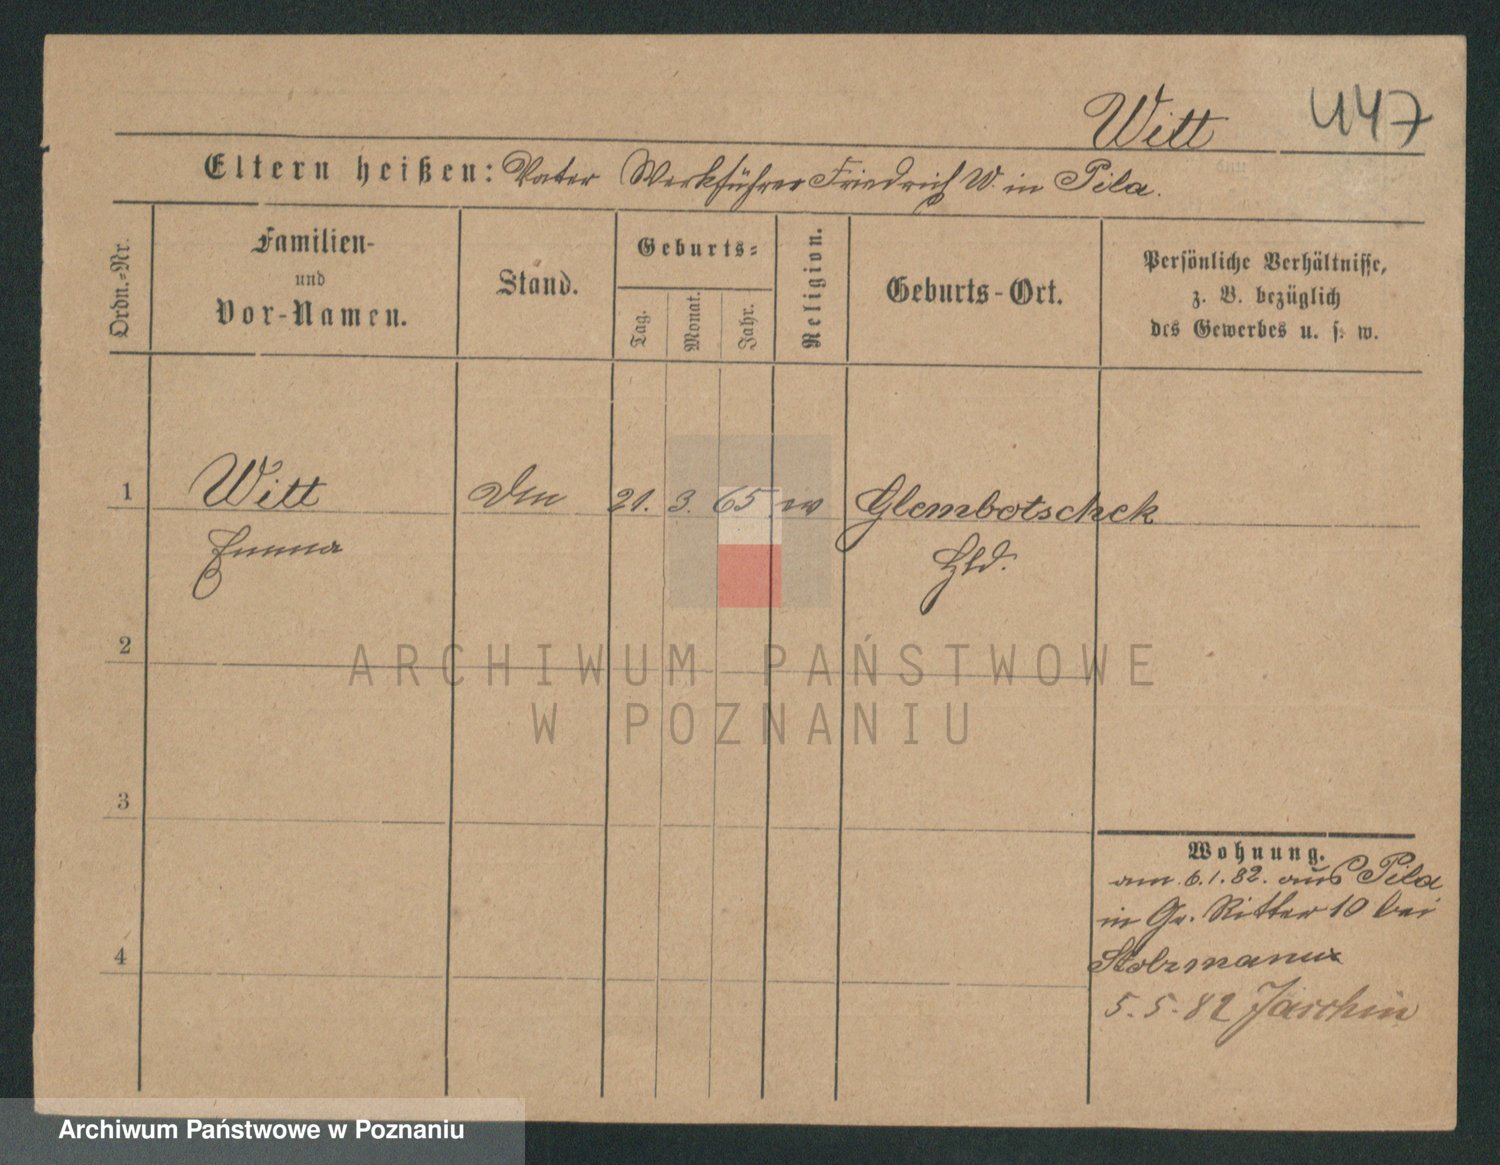 Witt 447
Eltern heißen: Vater Werkführer Friedrich W. in Pila.
Ordn.-Nr.
Familien-
und
Vor-Namen.
Stand.
Geburts-
Tag.
Monat.
Jahr.
Religion.
Geburts-Ort.
Persönliche Verhältnisse,
z. B. bezüglich
des Gewerbes u. s. w.
1 Witt 21. 3. 65 Glembotschek
Emma
2
3
4
Wohnung.
am 6.1.82. aus Pila
in Gr. Ritter 10 bei
5.5.82 Jarchin
ARCHIWUM PAŃSTWOWE
W POZNANIU
Archiwum Państwowe w Poznaniu